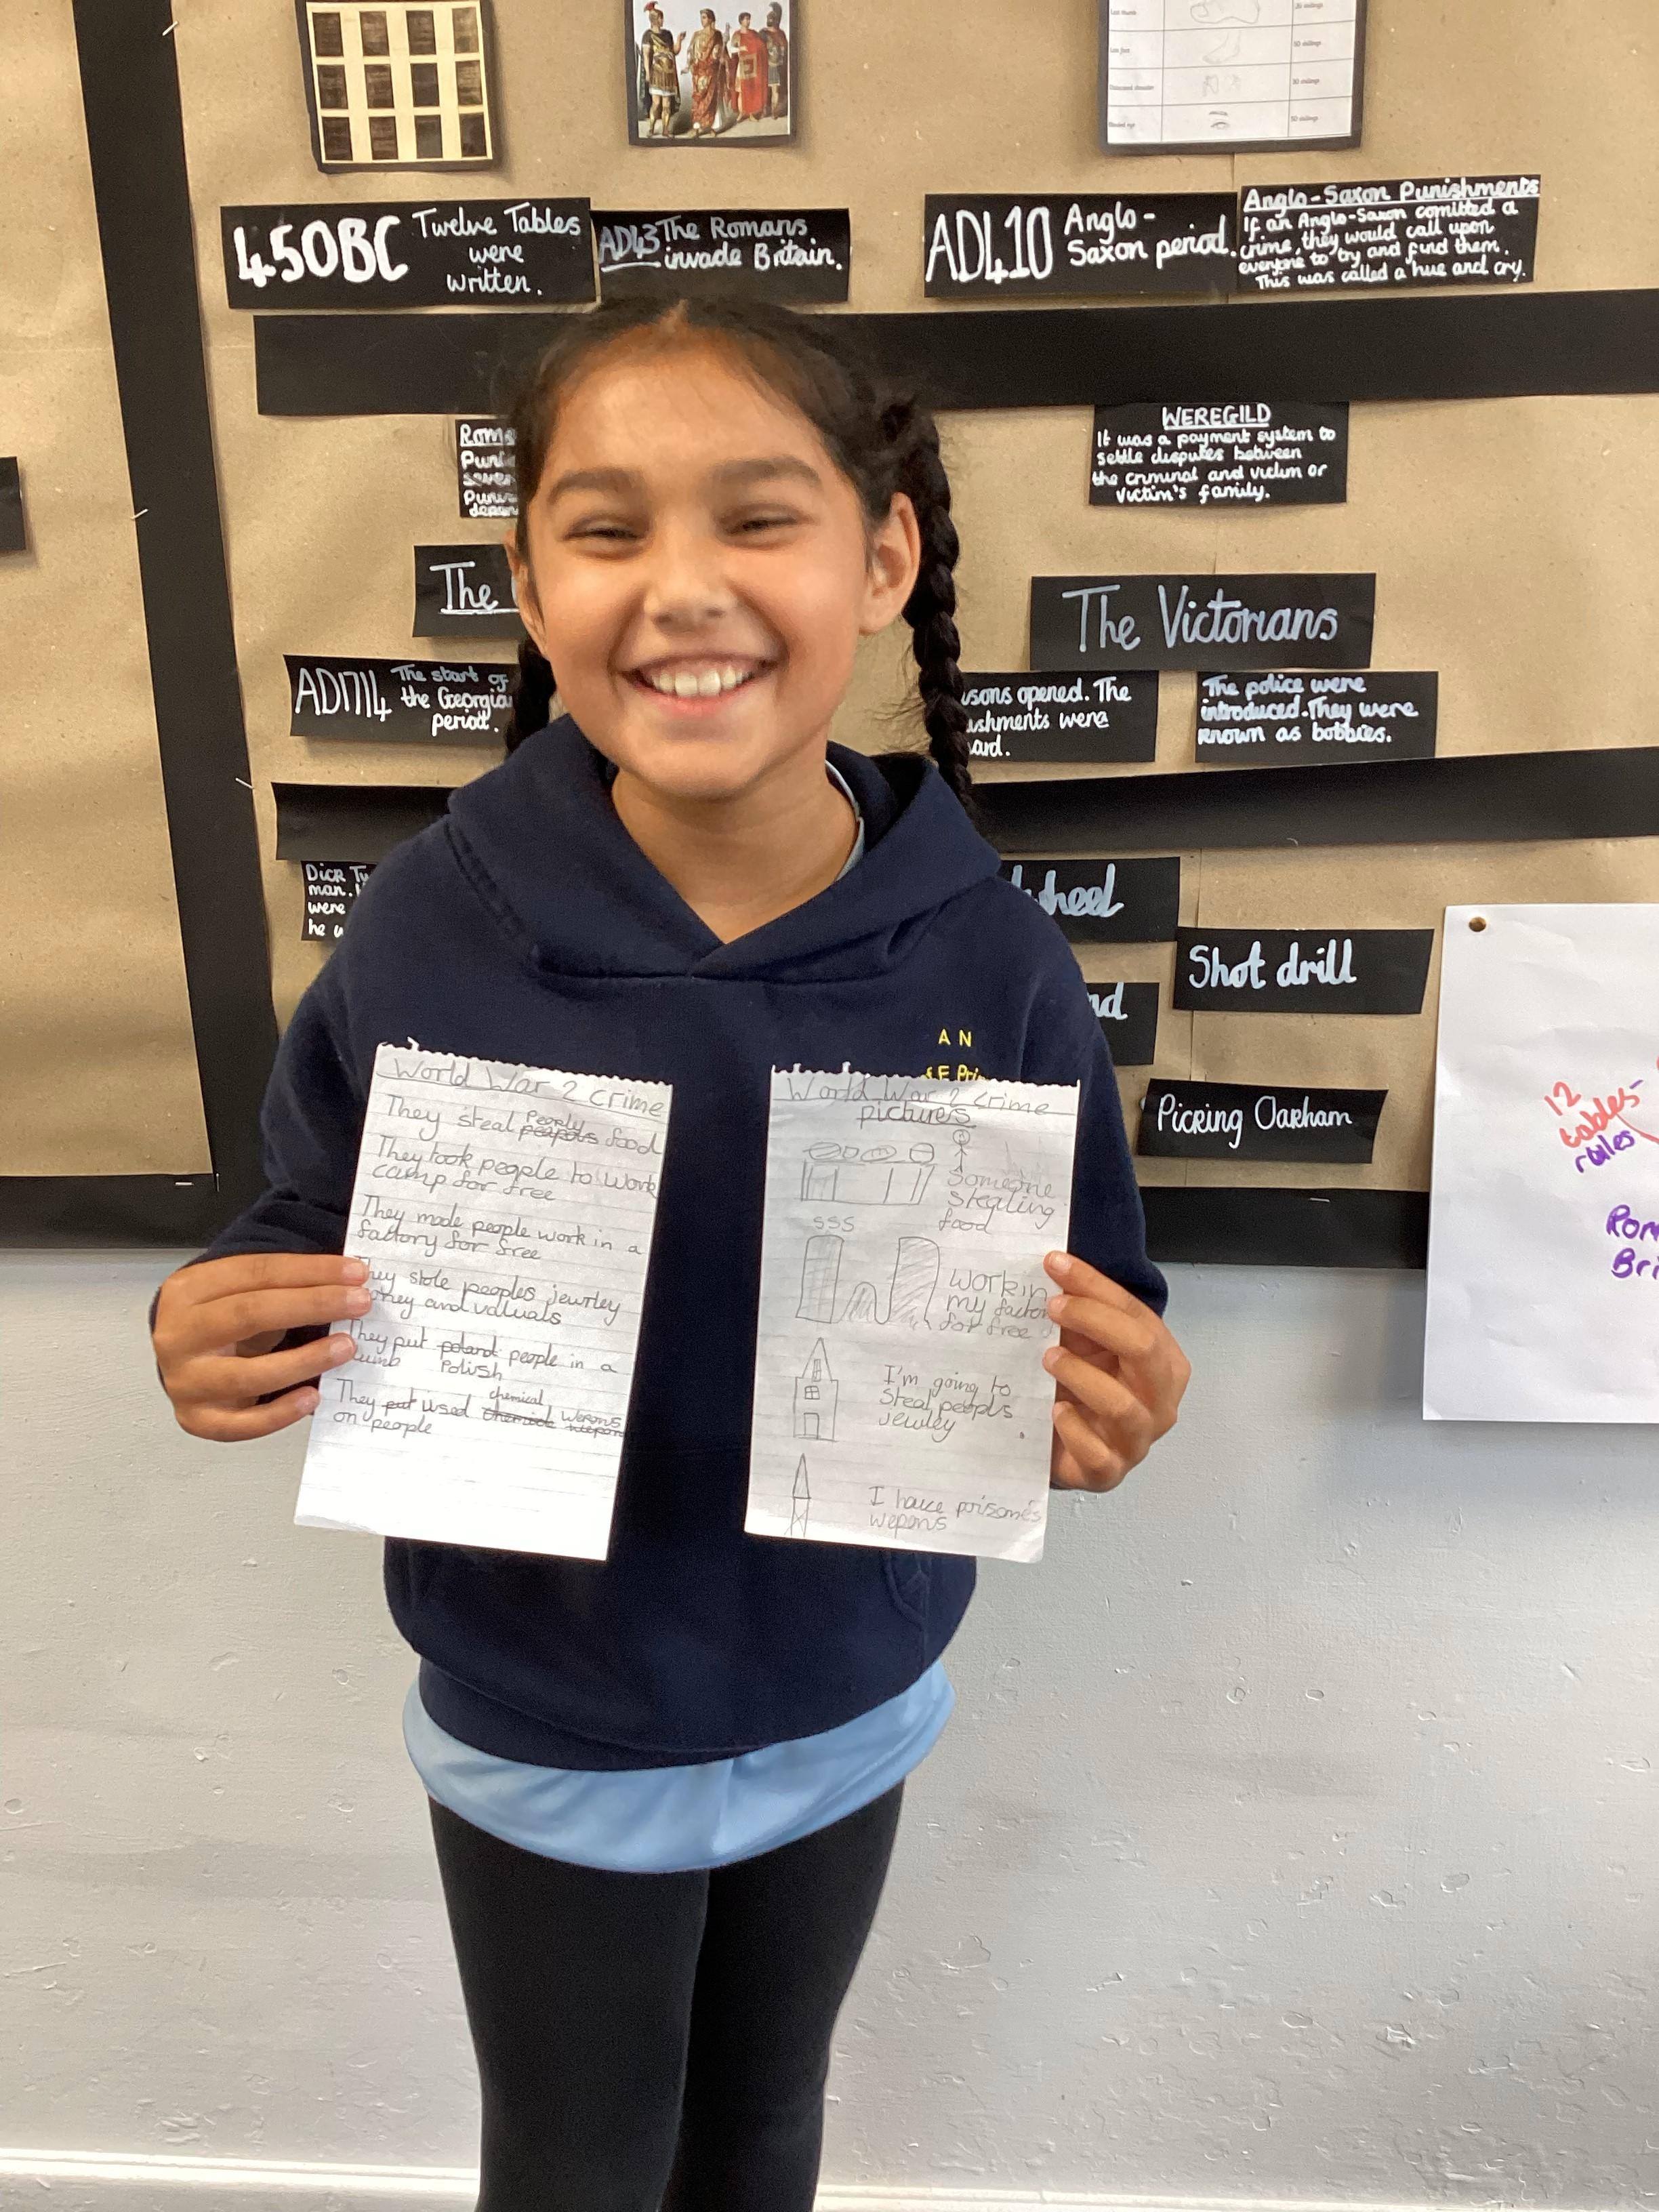 Lost thumb
20 shillings
Lost foot
50 shillings
Dislocated shoulder
30 shillings
Blinded eye
50 shillings
450BC Twelve Tables
were
written.
AD43 The Romans
invade Britain.
AD410 Anglo-
Saxon period.
Anglo-Saxon Punishments
If an Anglo-Saxon comitted a
crime, they would call upon
everyone to try and find them.
This was called a hue and cry.
WEREGILD
It was a payment system to
settle disputes between
the criminal and victim or
victim's family.
The
The Victorians
AD1714 The start of
the Georgia
period.
isons opened. The
ishments were
ard.
The police were
introduced. They were
known as bobbies.
Dick Tu
man.
were
he w
heel
nd
Shot drill
Picking Oakham
12
tables-
rules
Rom
Bri
A N
f E Pri
World War 2 crime
They steal peoply peapols food
They took people to work
camp for free
They made people work in a
factory for free
They stole peoples jewrley
money and valuals
They put poland people in a
Polish
They put used chemical wepons
on people
World War 2 crime
picturs
Someone
stealing
food
sss
work in
my factory
for free
I'm going to
steal peopls
jewley
I have poisones
wepons